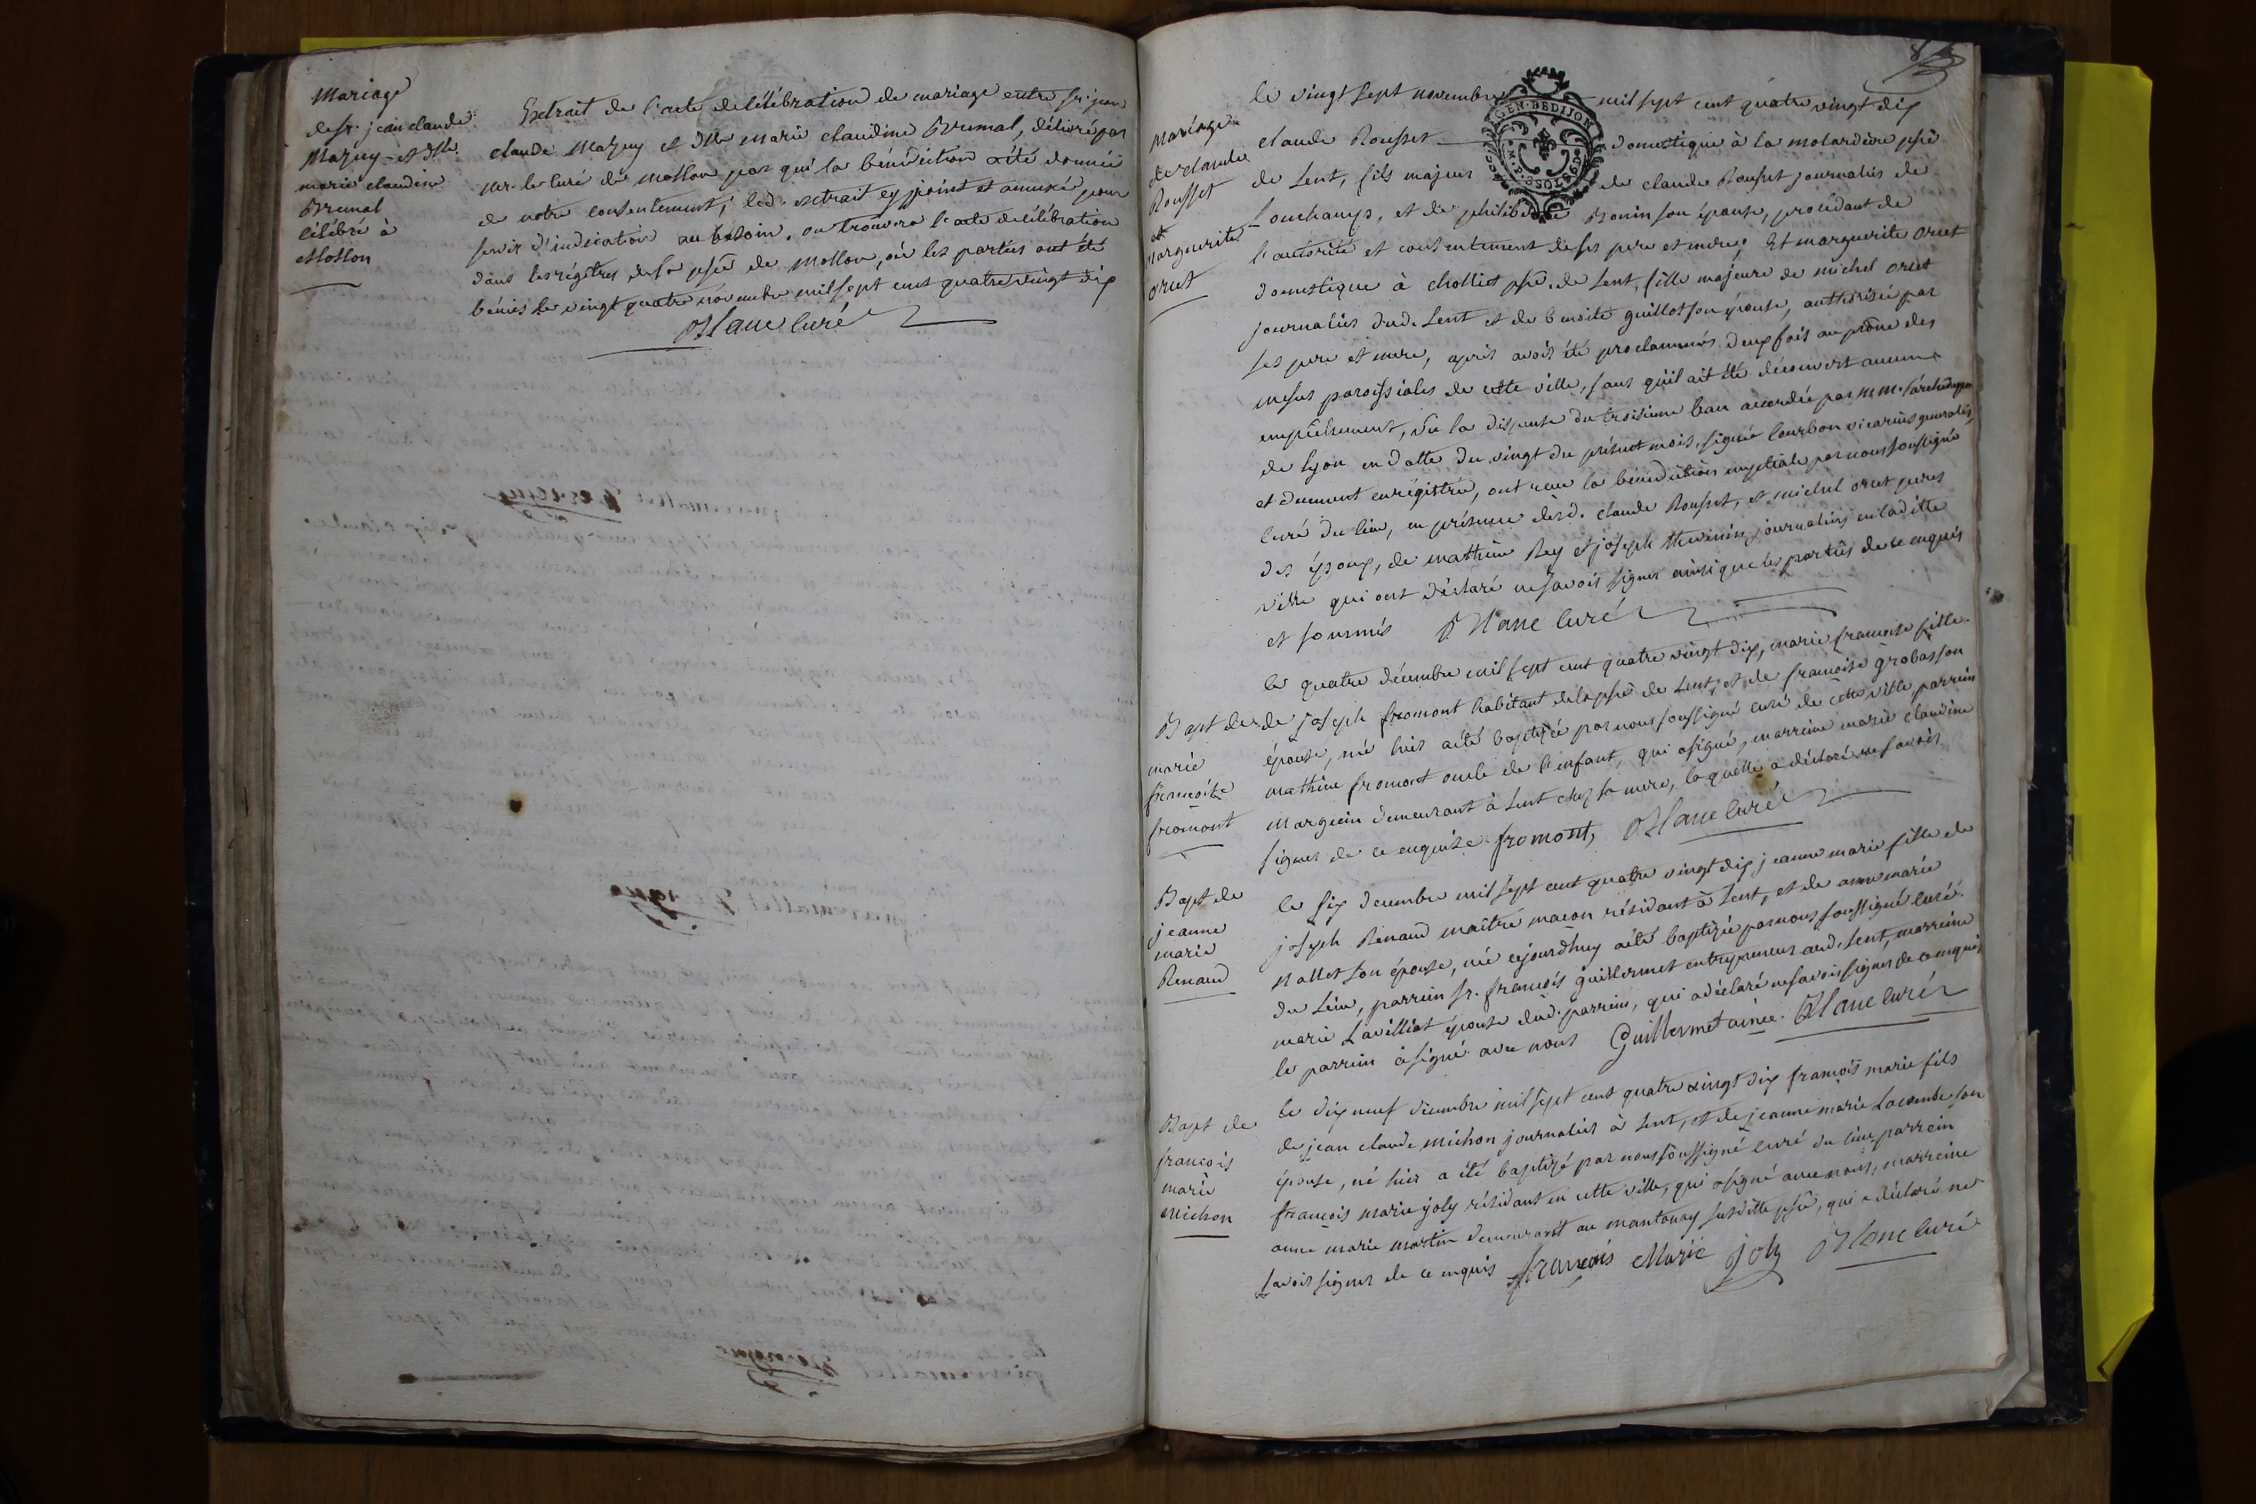 Mariage
de sr. jean claude
Mazuy et dlle.
marie claudine
Brunal
célébré à
Mollon
Extrait de l'acte de célébration de mariage entre sr. jean
claude Mazuy et dlle marie claudine Brunal, délivré par
mr. le curé de Mollon par qui la bénédiction a été donnée
de notre consentement; led. extrait cy joint et annexé pour
servir d'indication au besoin, on trouvera l'acte de célébration
dans les régitres de la psse de Mollon, où les parties ont été
bénies le vingt quatre novembre mil sept cent quatre vingt dix
curé
Mariage
de claude
Rousset
et
Marguerite
oruet
le vingt sept novembre mil sept cent quatre vingt dix
claude Rousset domestique à la molardière psse
de Lent, fils majeur de claude Rousset journalier de
Longchamps, et de philiberte Bonin son épouse, procédant de
l'autorité et consentement de ses pere et mere; Et marguerite oruet
domestique à chollet psse. de Lent, fille majeure de michel oruet
journalier dud. Lent et de benoite guillot son épouse, authorisée par
ses pere et mere, après avoir été proclammés deux fois au prône des
messes paroissiales de cette ville, sans qu'il ait été découvert aucun
empêchement, vu la dispense du troisieme ban accordée par
de Lyon en datte du vingt du présent mois, signée Courbon vicarius generalis,
et duement enrégistrée, ont recu la bénédiction nuptiale par nous soussigné
curé du lieu, en présence desd. claude Rousset, et michel oruet peres
des époux, de mathieu Rey et joseph thevenin, journaliers en laditte
ville qui ont déclaré ne savoir signer ainsi que les parties de ce enquis
et sommés curé
Bapt de
marie
francoise
fromont
le quatre décembre mil sept cent quatre vingt dix, marie francoise fille
de joseph fromont habitant de la psse de Lent, et de francoise grobasson
épouse, né hier a été baptizée par nous soussigné curé de cette ville parrein
mathieu fromont oncle de l'enfant, qui a signé, marreine marie claudine
Marguin demeurant à Lent chez sa mere, laquelle a déclaré ne savoir
signer de ce enquise fromont, curé
Bapt de
jeanne
marie
Renaud
le six decembre mil sept cent quatre vingt dix jeanne marie fille de
joseph Renaud maître macon résidant à Lent, et de anne marie
Nallet son épouse, né cejourdhuy a été baptizée par nous soussigné curé
du Lieu, parrein sr. francois guillermet entrepreneur aud. Lent, marreine
marie Lavilliat épouse dud. parrein, qui a déclaré ne savoir signer de ce enquis
le parrein a signé avec nous Guillermet ainée. curé
Bapt de
francois
marie
Michon
le dix neuf decembre mil sept cent quatre vingt dix francois marie fils
de jean claude Michon journalier à Lent, et de jeanne marie Lacombe son
épouse, né hier a été baptizé par nous soussigné curé du lieu parrein
francois marie joly résidant en cette ville, qui a signé avec nous, marreine
anne marie martin demeurant au mantouny susditte psse, qui a déclaré ne
savoir signer de ce enquis francois Marie joly curé